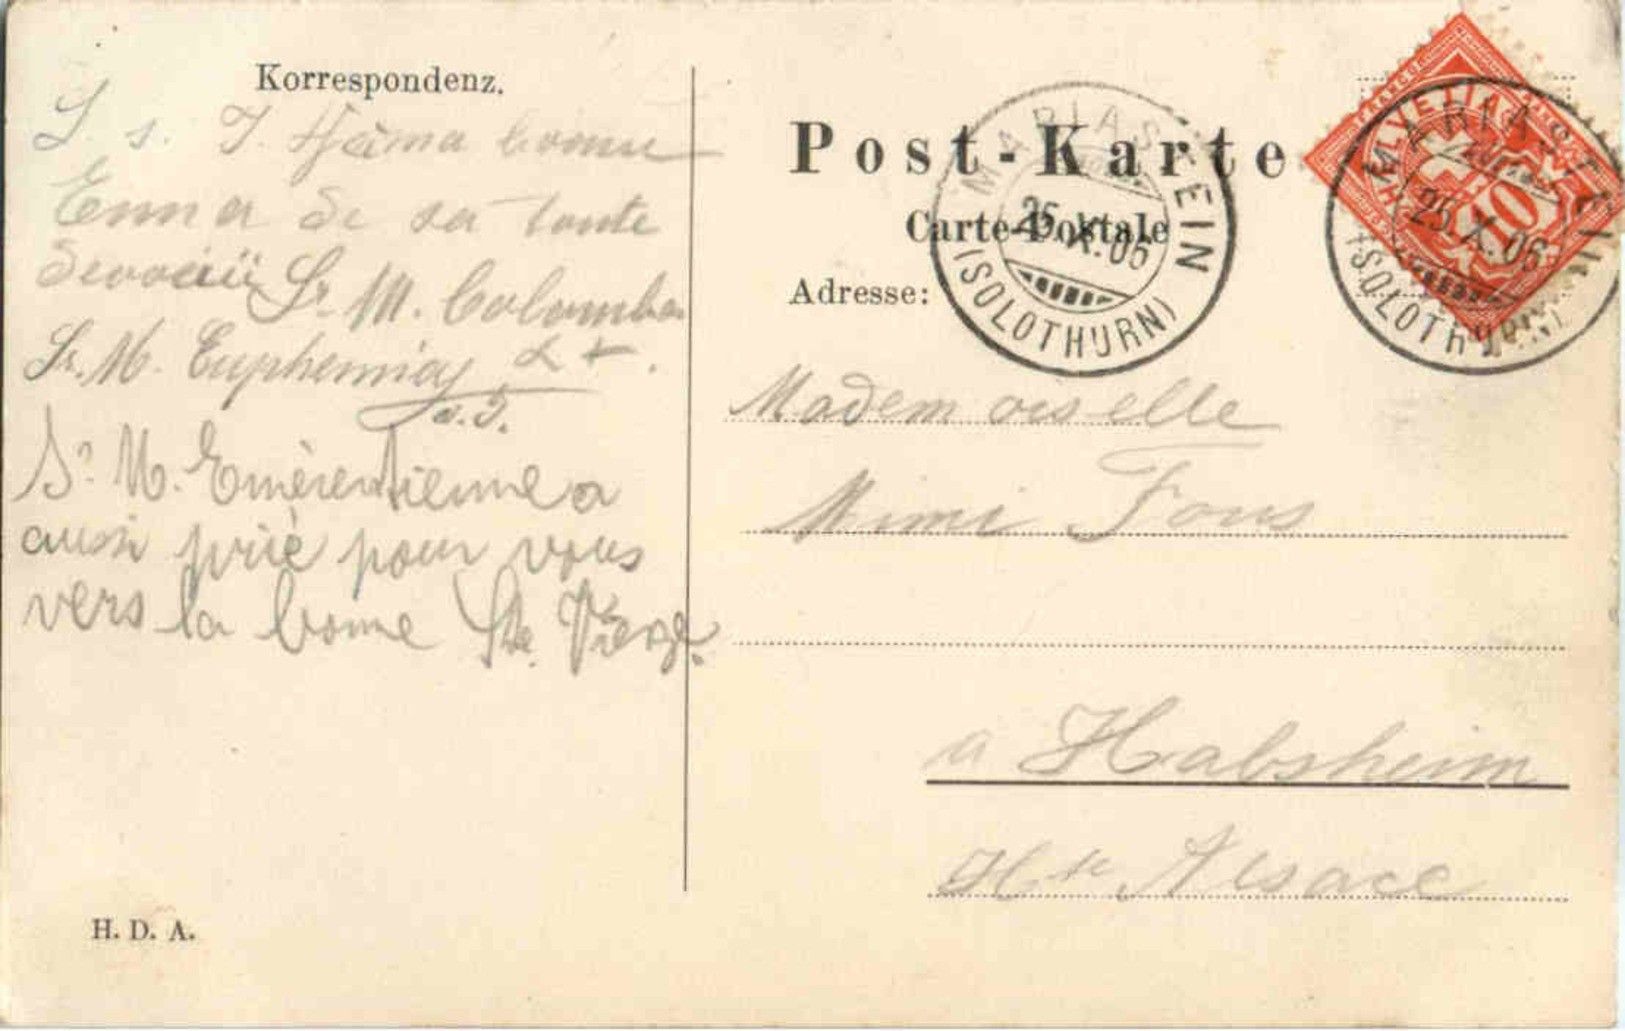 Korrespondenz.
S. s. J.
Emma de sa tante
Sr. M. Colomba
Sr. M. Euphemia
s. J.
Sr M. Emérentienne a
aussi prié pour vous
vers la bonne Ste. Vierge.
H. D. A.
Post-Karte
Carte-Postale
Adresse:
MARIASTEIN
25.X.06
(SOLOTHURN)
HELVETIA
FRANCO
10
MARIASTEIN
25.X.06
(SOLOTHURN)
Mademoiselle
Mimi Fons
a Habsheim
Hte Alsace